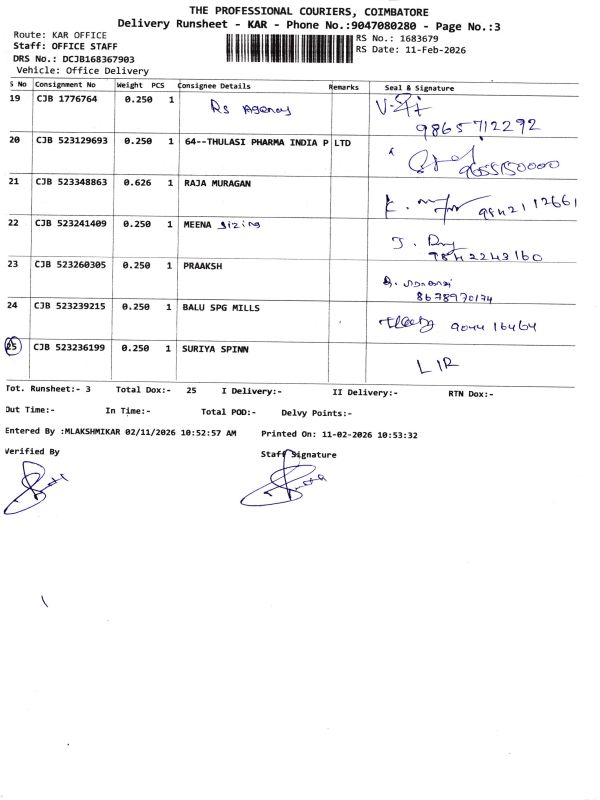 THE PROFESSIONAL COURIERS, COIMBATORE
Delivery Runsheet - KAR - Phone No.:9047080280 - Page No.:3
Route: KAR OFFICE
RS No.: 1683679
Staff: OFFICE STAFF
RS Date: 11-Feb-2026
DRS No.: DCJB168367903
Vehicle: Office Delivery
S No Consignment No Weight PCS Consignee Details Remarks Seal & Signature
19 CJB 1776764 0.250 1 RS Agency
9865712292
20 CJB 523129693 0.250 1 64--THULASI PHARMA INDIA P LTD
21 CJB 523348863 0.626 1 RAJA MURAGAN
9842112661
22 CJB 523241409 0.250 1 MEENA sizing
9842243160
23 CJB 523260305 0.250 1 PRAAKSH
8678970174
24 CJB 523239215 0.250 1 BALU SPG MILLS
25 CJB 523236199 0.250 1 SURIYA SPINN
LIR
Tot. Runsheet:- 3 Total Dox:- 25 I Delivery:- II Delivery:- RTN Dox:-
Out Time:- In Time:- Total POD:- Delvy Points:-
Entered By :MLAKSHMIKAR 02/11/2026 10:52:57 AM Printed On: 11-02-2026 10:53:32
Verified By Staff Signature